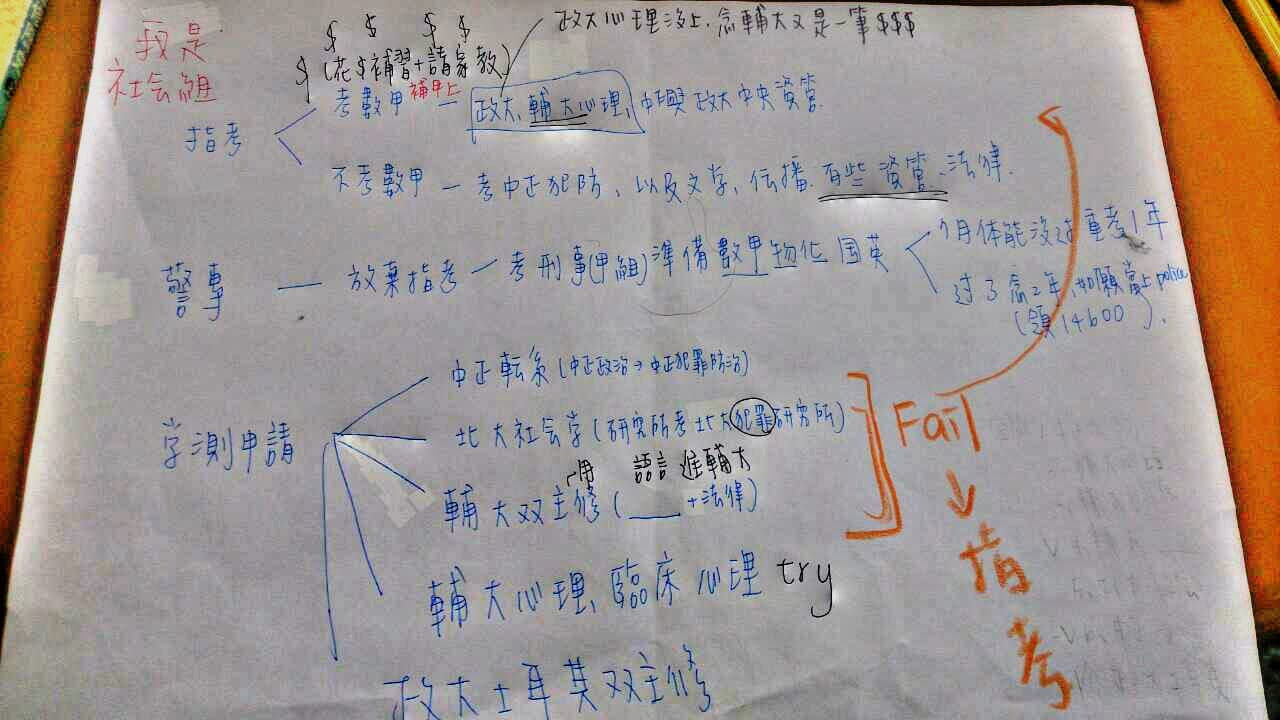 我是
社会組
政大心理沒上,念輔大又是一筆$$$
$ $ $ $
$(花$補習+請家教)
指考
考數甲 補甲上 — 政大、輔大心理,中興政大中央資管
不考數甲 — 考中正犯防、以及文学、伝播、有些資管、法律.
警專 — 放棄指考 — 考刑事(甲組)準備數甲物化国英
7月体能沒过重考1年
过了念2年,如願當上police
(領14600).
学測申請
中正転系(中正政治→中正犯罪防治)
北大社会学(研究所考北大犯罪研究所)
用 語言進輔大
輔大双主修(___+法律)
輔大心理、臨床心理 try
政大土耳其双主修
Fail
↓
指
考